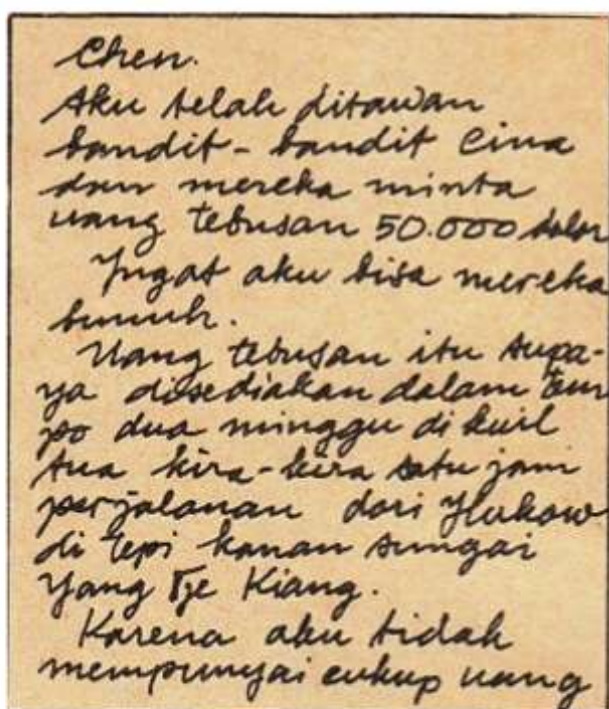 Chen.
Aku telah ditawan
bandit-bandit Cina
dan mereka minta
uang tebusan 50.000 dolar
Ingat aku bisa mereka
bunuh.
Uang tebusan itu supa-
ya disediakan dalam tem
po dua minggu di kuil
tua kira-kira satu jam
perjalanan dari Hukow
di tepi kanan sungai
Yang Tje Kiang.
Karena aku tidak
mempunyai cukup uang